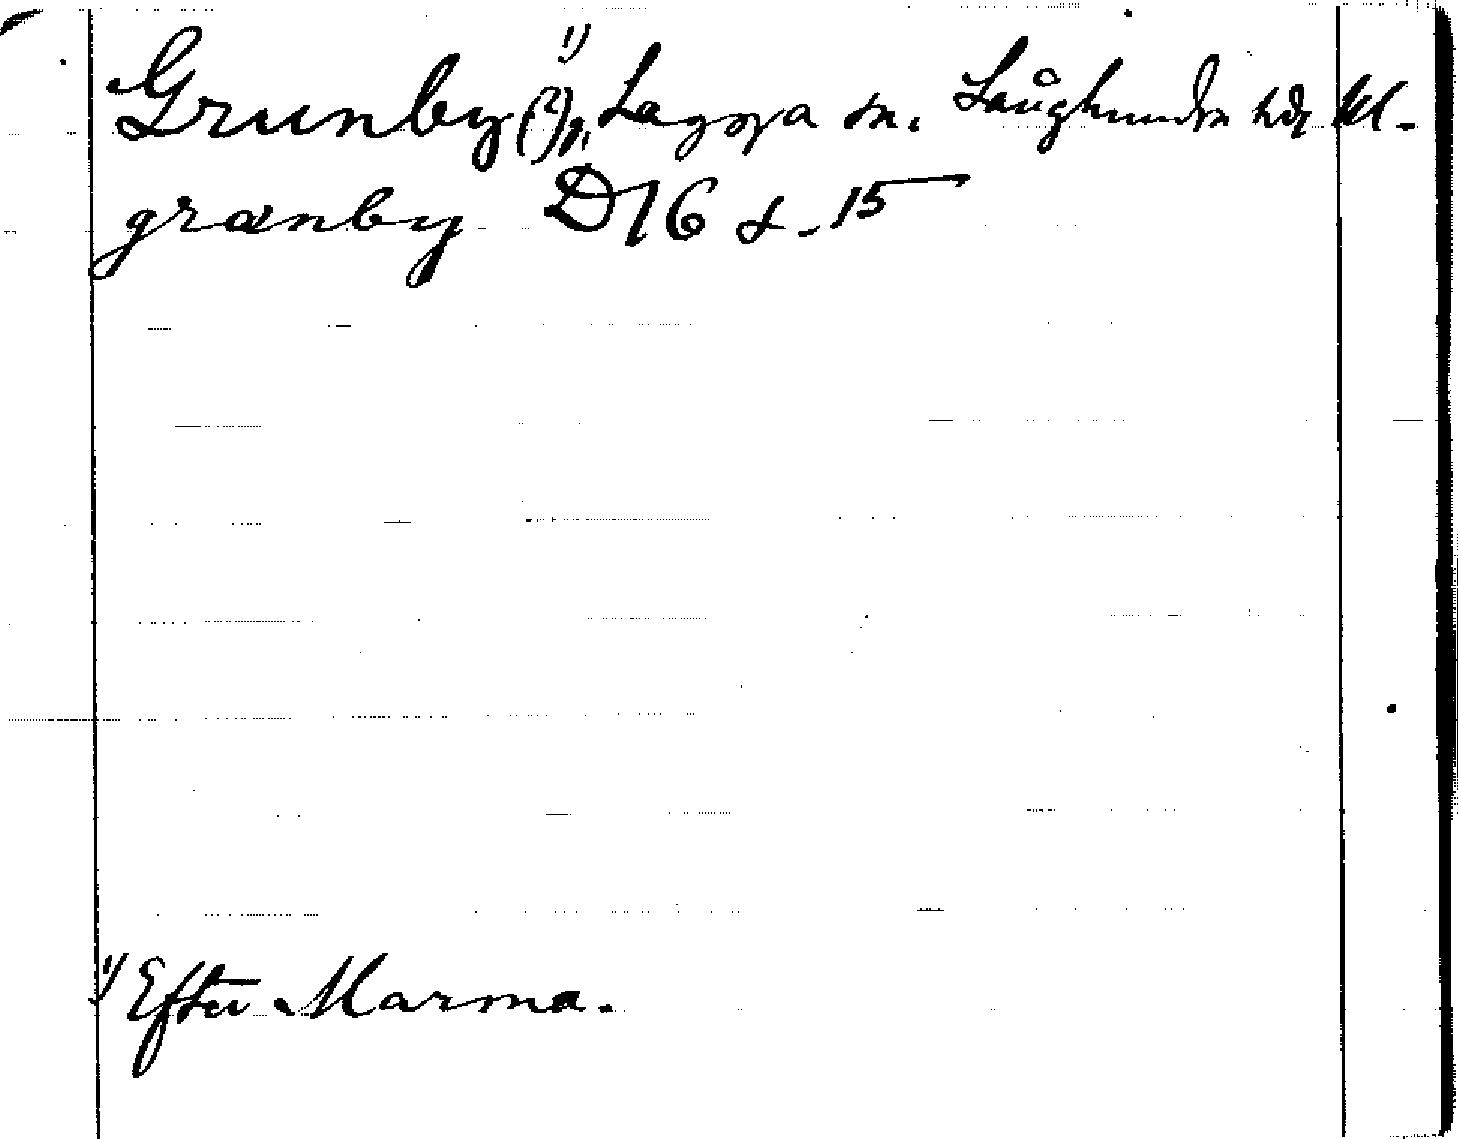 Grunby (?) ¹⁾, Lagga sn. Långhundra hd, Ul.
granby D16 &. 15
¹⁾ Efter Marma.